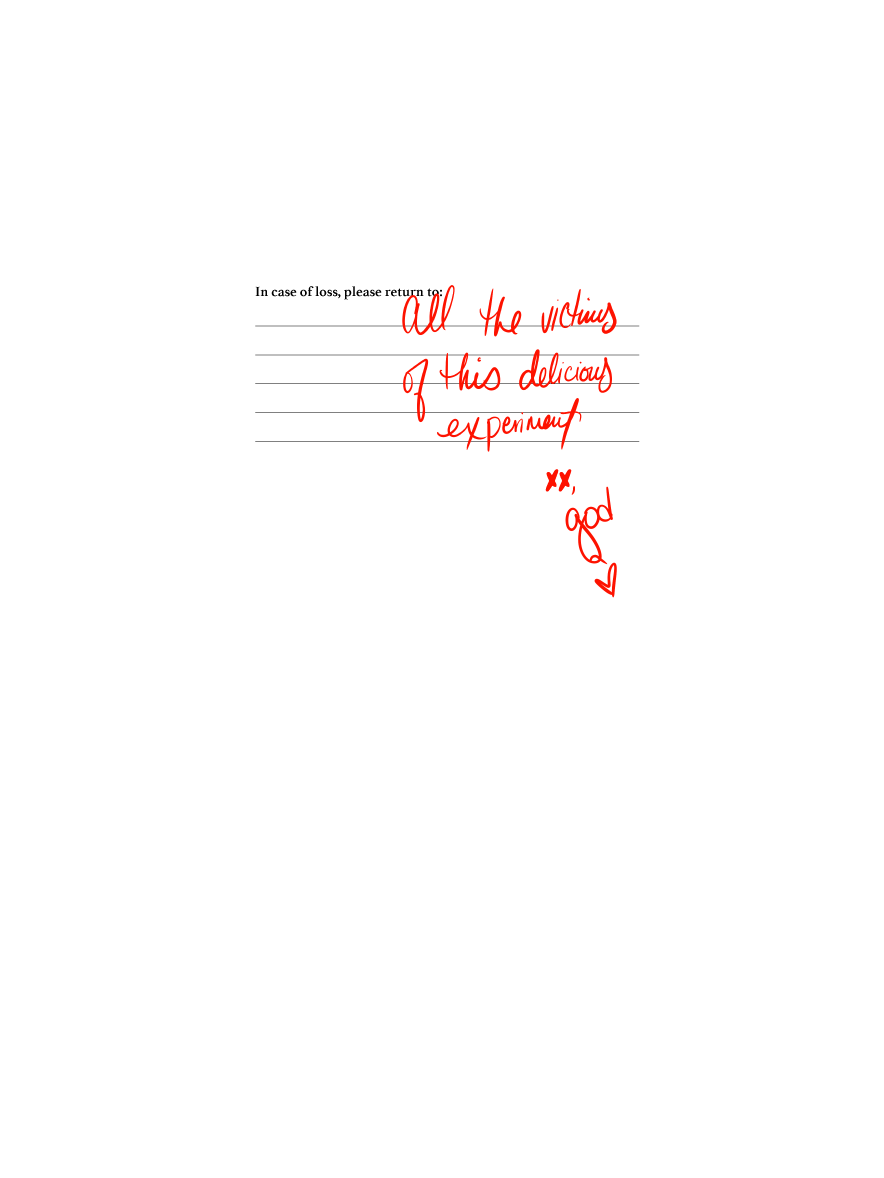 In case of loss, please return to:
all the victims
of this delicious
experiment
xx,
god